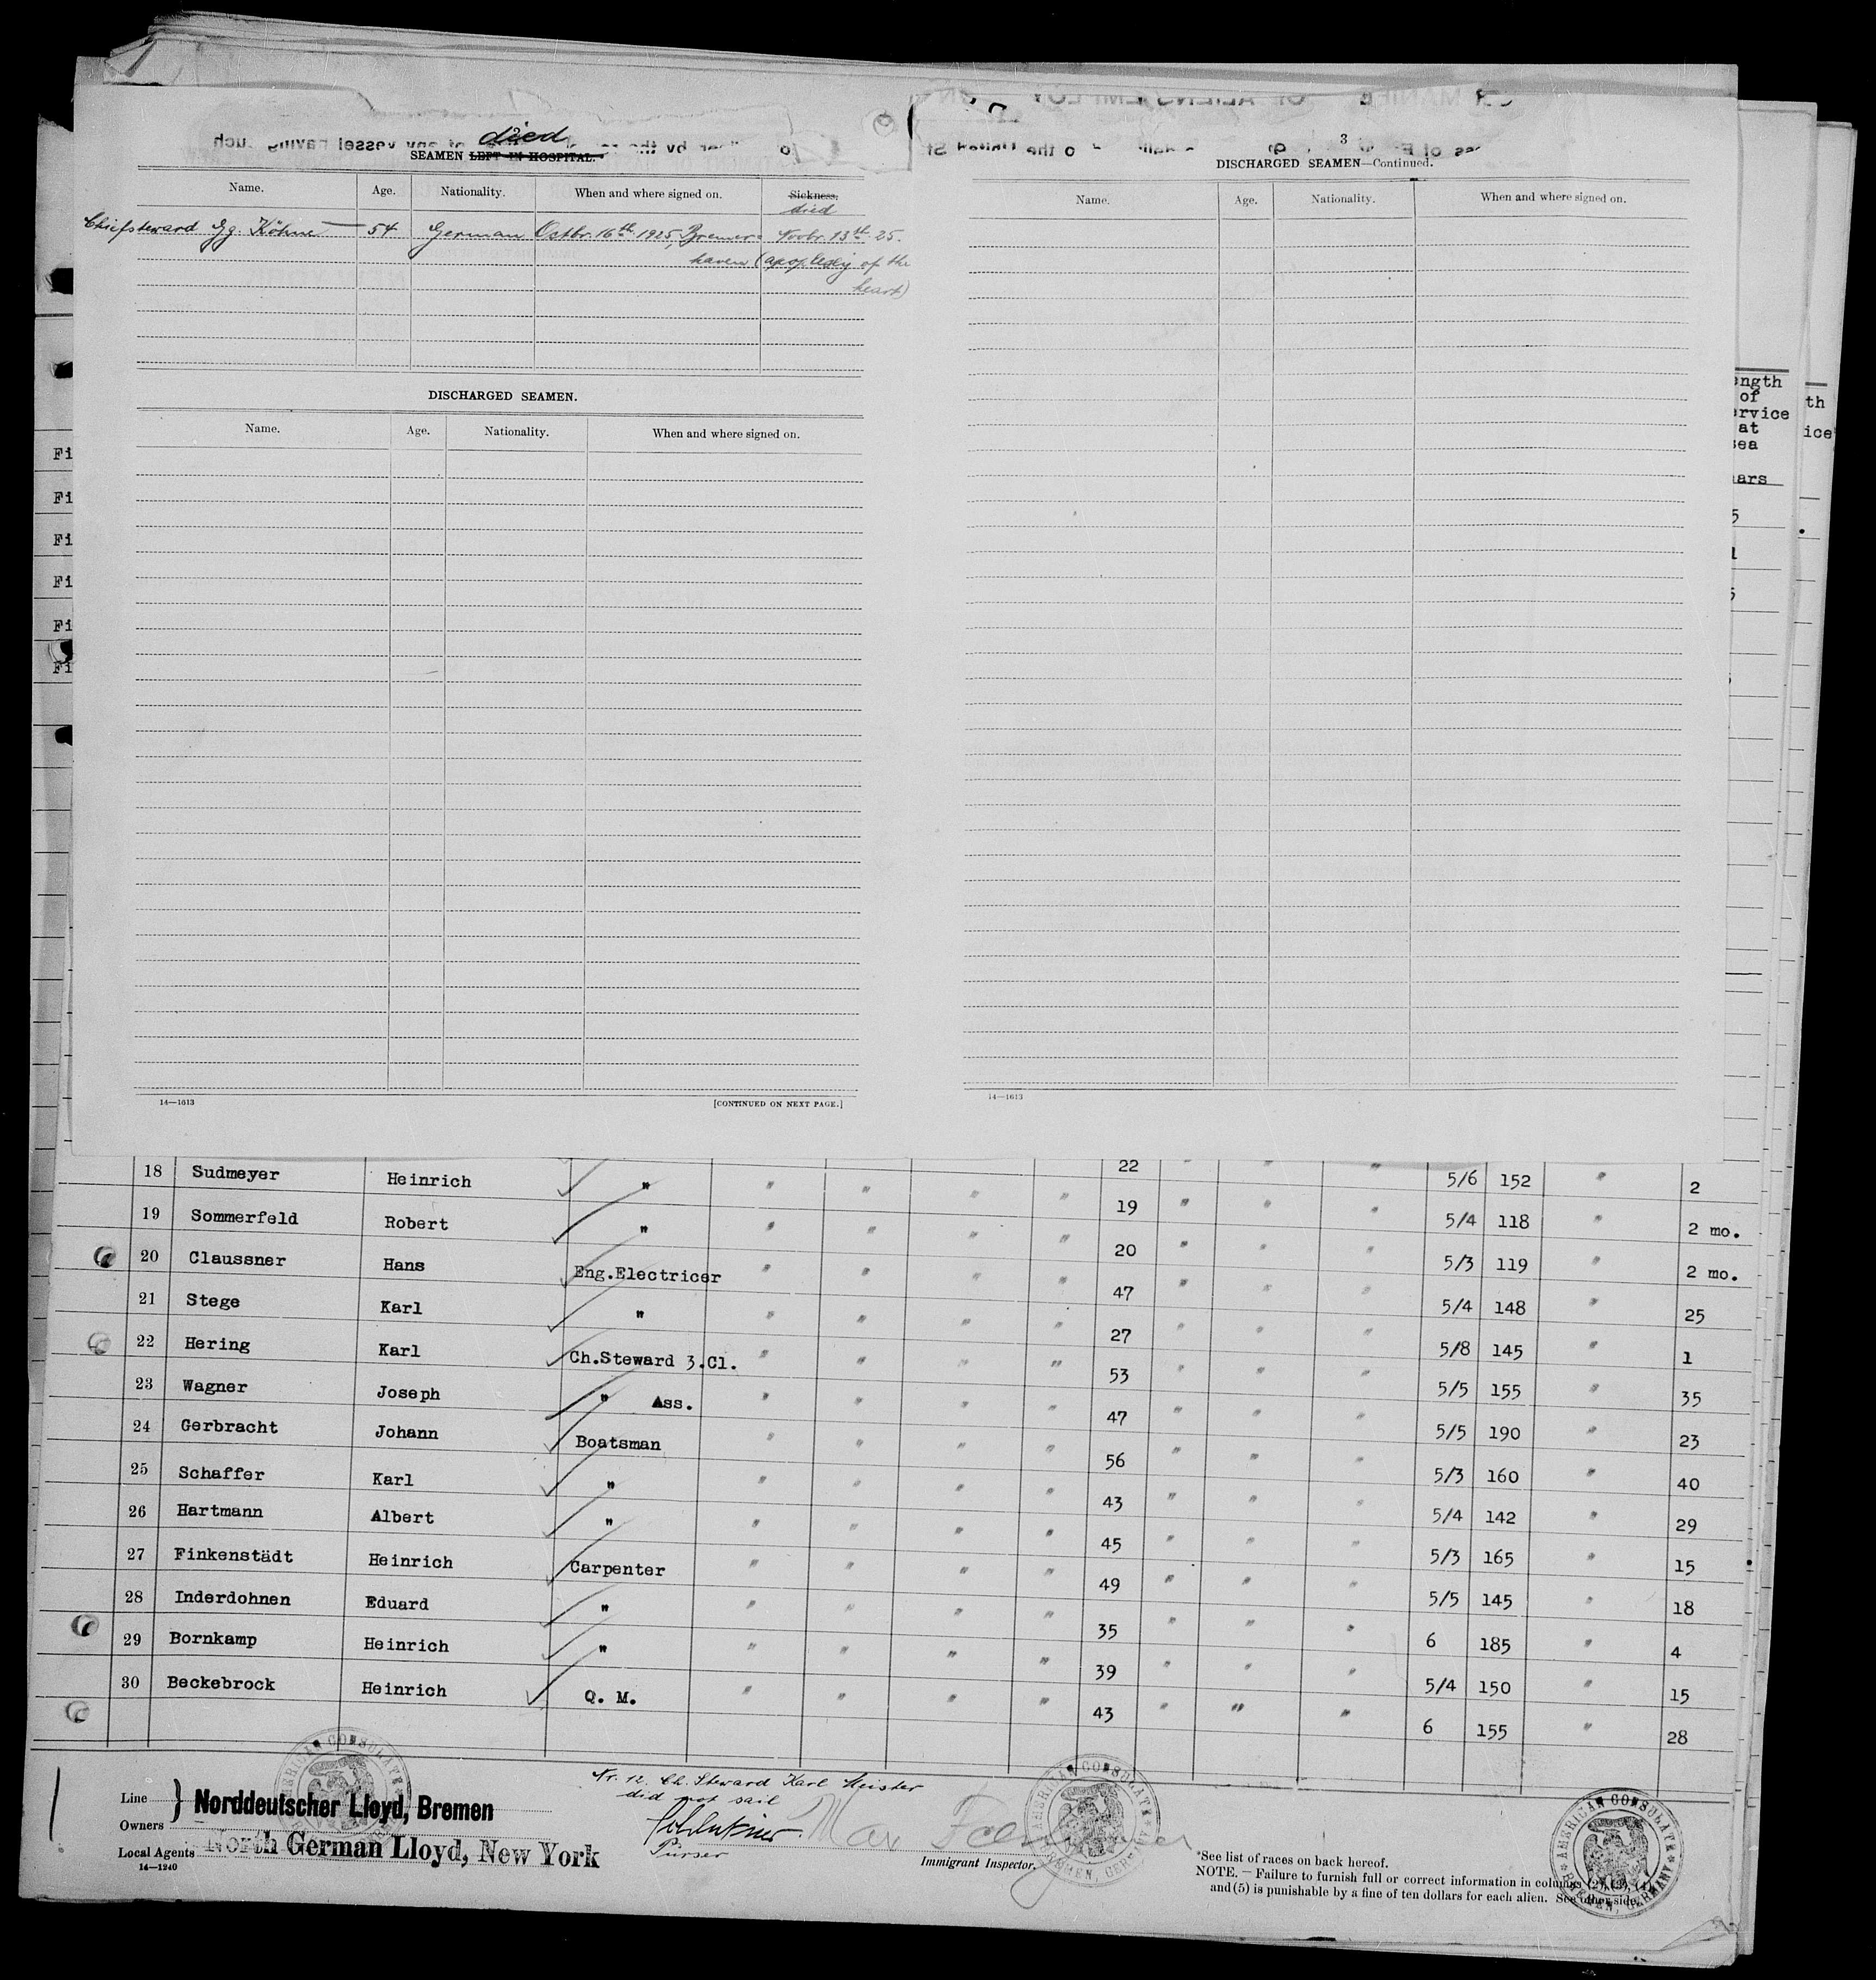 2
died
SEAMEN LEFT IN HOSPITAL.
Name. Age. Nationality. When and where signed on. Sickness.
died
Chiefsteward Gg. Köhne 54 German Octbr. 16th 1925, Bremer- Novbr. 13th 25.
haven (apoplexy of the
heart)
DISCHARGED SEAMEN.
Name. Age. Nationality. When and where signed on.
14—1613 [CONTINUED ON NEXT PAGE.]
3
DISCHARGED SEAMEN—Continued.
Name. Age. Nationality. When and where signed on.
14—1613
ength
of
ervice
at
sea
ars
th
ice
Fi
Fi
Fi
Fi
Fi
Fi
22 " " " 5/6 152 " 2
18 Sudmeyer Heinrich " " " " " 19 " " " 5/4 118 " 2 mo.
19 Sommerfeld Robert " " " " " 20 " " " 5/3 119 " 2 mo.
20 Claussner Hans Eng.Electricer " " " " 47 " " " 5/4 148 " 25
21 Stege Karl " " " " " 27 " " " 5/8 145 " 1
22 Hering Karl Ch.Steward 3.Cl. " " " " 53 " " " 5/5 155 " 35
23 Wagner Joseph " Ass. " " " " 47 " " " 5/5 190 " 23
24 Gerbracht Johann Boatsman " " " " 56 " " " 5/3 160 " 40
25 Schaffer Karl " " " " " 43 " " " 5/4 142 " 29
26 Hartmann Albert " " " " " 45 " " " 5/3 165 " 15
27 Finkenstädt Heinrich Carpenter " " " " 49 " " " 5/5 145 " 18
28 Inderdohnen Eduard " " " " " 35 " " " 6 185 " 4
29 Bornkamp Heinrich " " " " " 39 " " " 5/4 150 " 15
30 Beckebrock Heinrich Q. M. " " " " 43 " " " 6 155 " 28
Nr. 12. Ch. Steward Karl Meister
did not sail
Purser
Line
Owners } Norddeutscher Lloyd, Bremen
Local Agents North German Lloyd, New York
14—1240
Max
Immigrant Inspector.
*See list of races on back hereof.
NOTE.—Failure to furnish full or correct information in columns (2), (3), (4),
and (5) is punishable by a fine of ten dollars for each alien. See other side.
AMERICAN CONSULATE
AMERICAN CONSULATE BREMEN, GERMANY
AMERICAN CONSULATE BREMEN, GERMANY